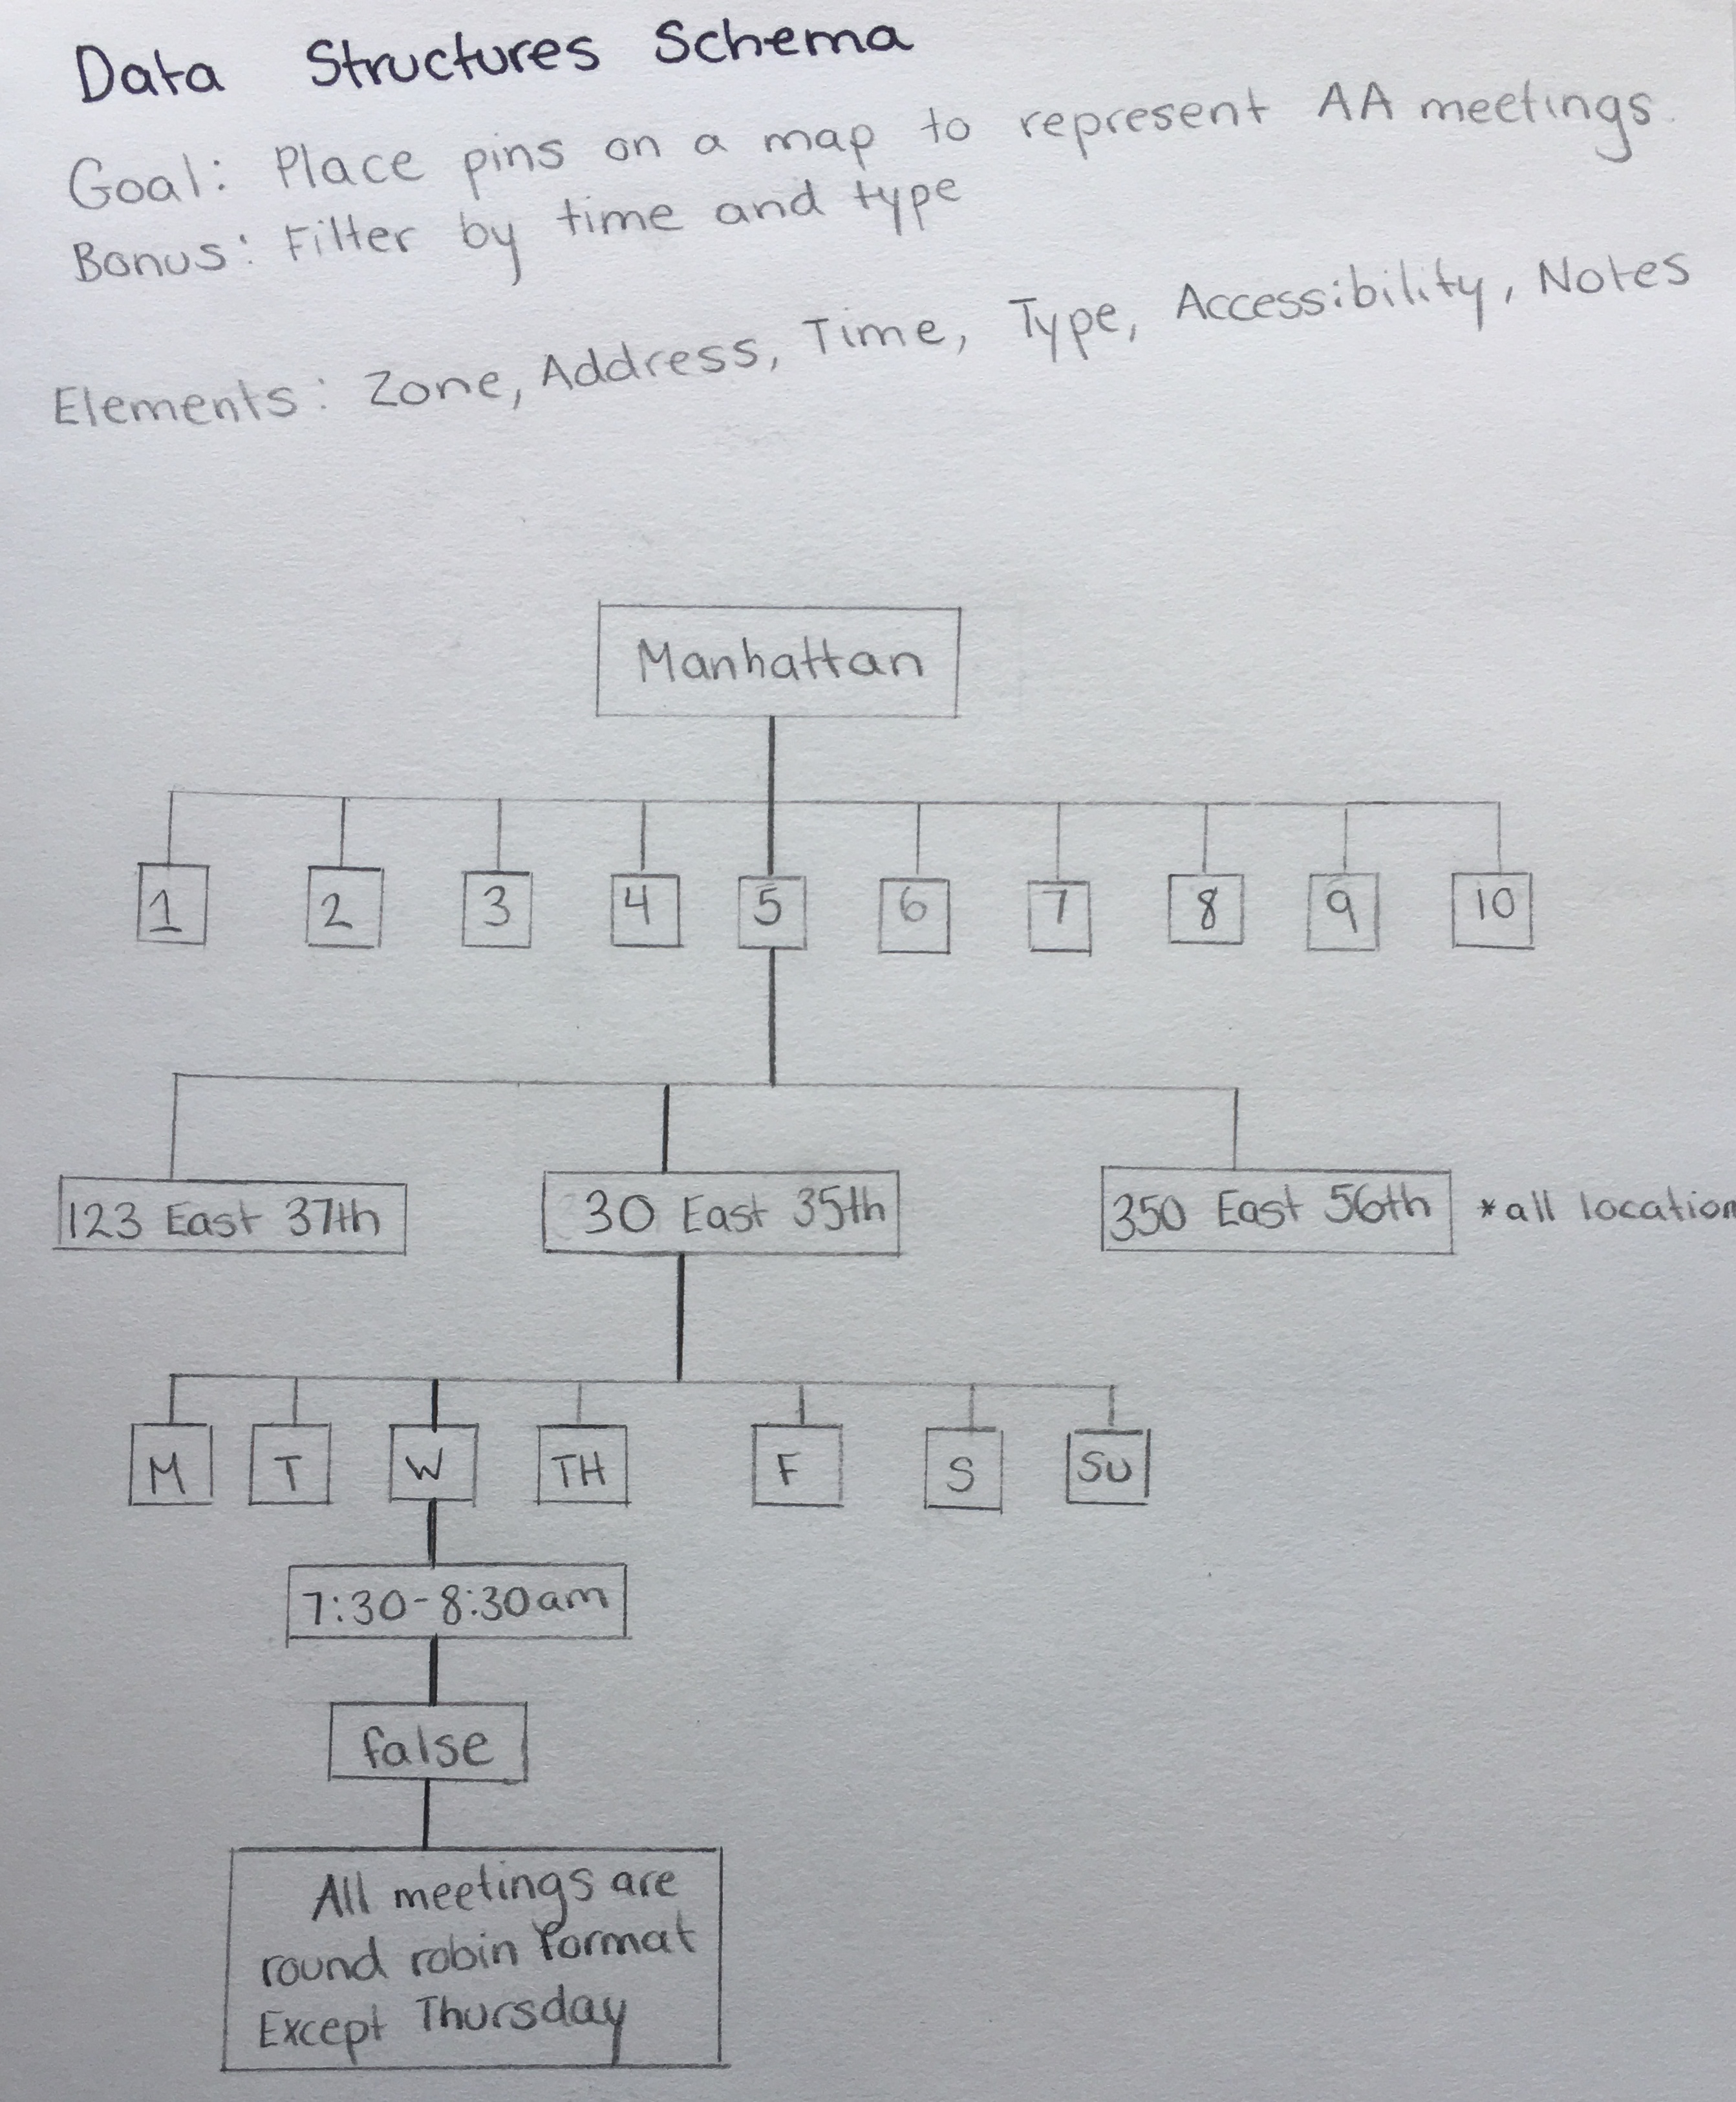 Data Structures Schema
Goal: Place pins on a map to represent AA meetings.
Bonus: Filter by time and type
Elements: Zone, Address, Time, Type, Accessibility, Notes
Manhattan
1 2 3 4 5 6 7 8 9 10
123 East 37th 30 East 35th 350 East 56th *all location
M T W TH F S SU
7:30-8:30am
false
All meetings are
round robin format
Except Thursday